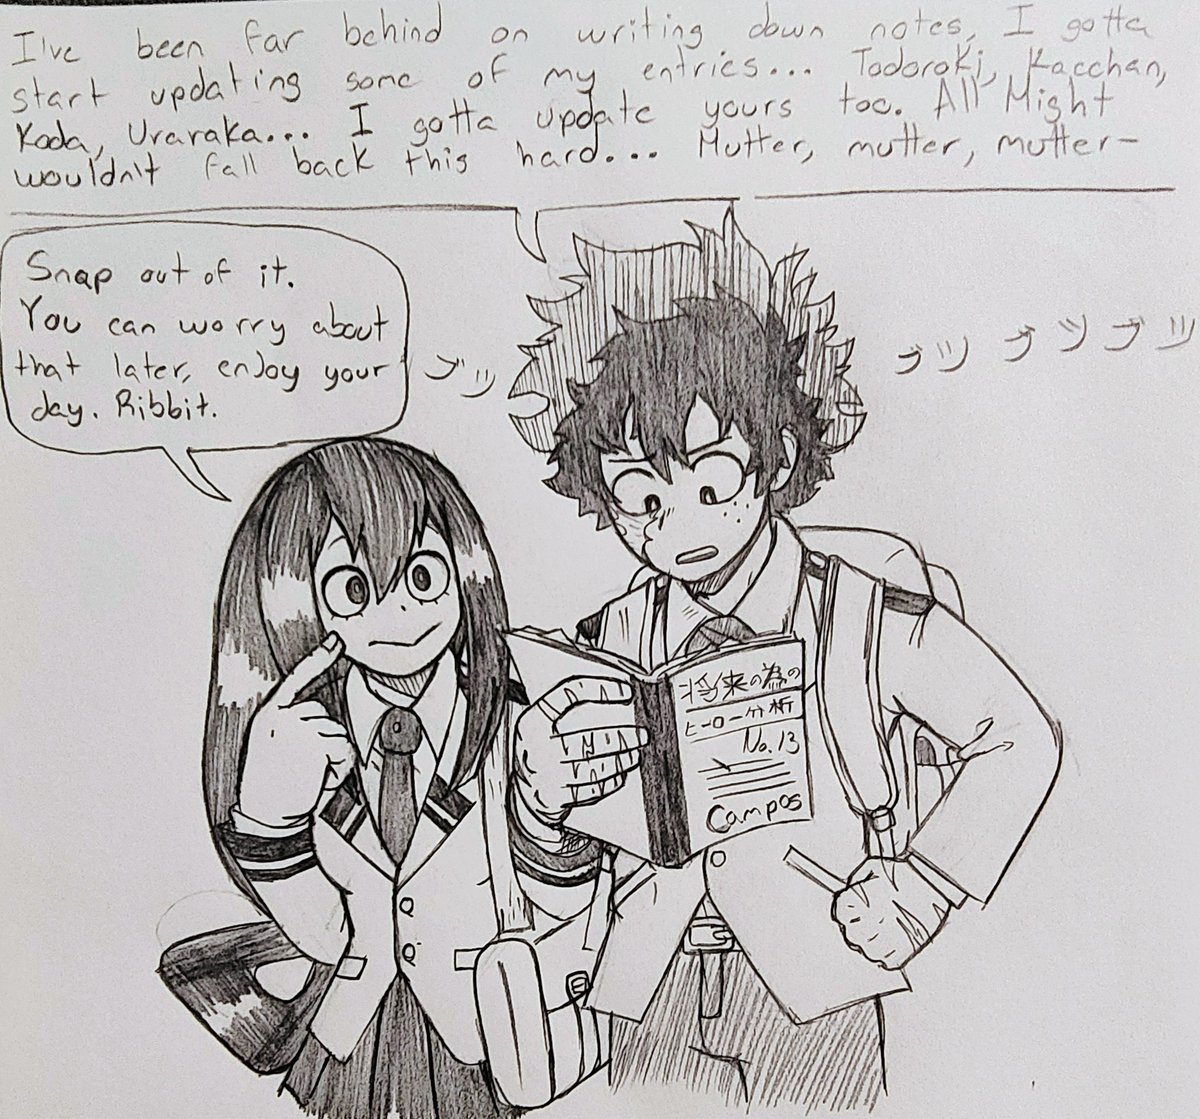 I've been far behind on writing down notes, I gotta
start updating some of my entries... Todoroki, Kacchan,
Koda, Uraraka... I gotta update yours too. All Might
wouldn't fall back this hard... Mutter, mutter, mutter-
Snap out of it.
You can worry about
that later, enjoy your
day. Ribbit.
ブツ
ブツ ブツ ブツ
将来の為の
ヒーロー分析
No. 13
Campos